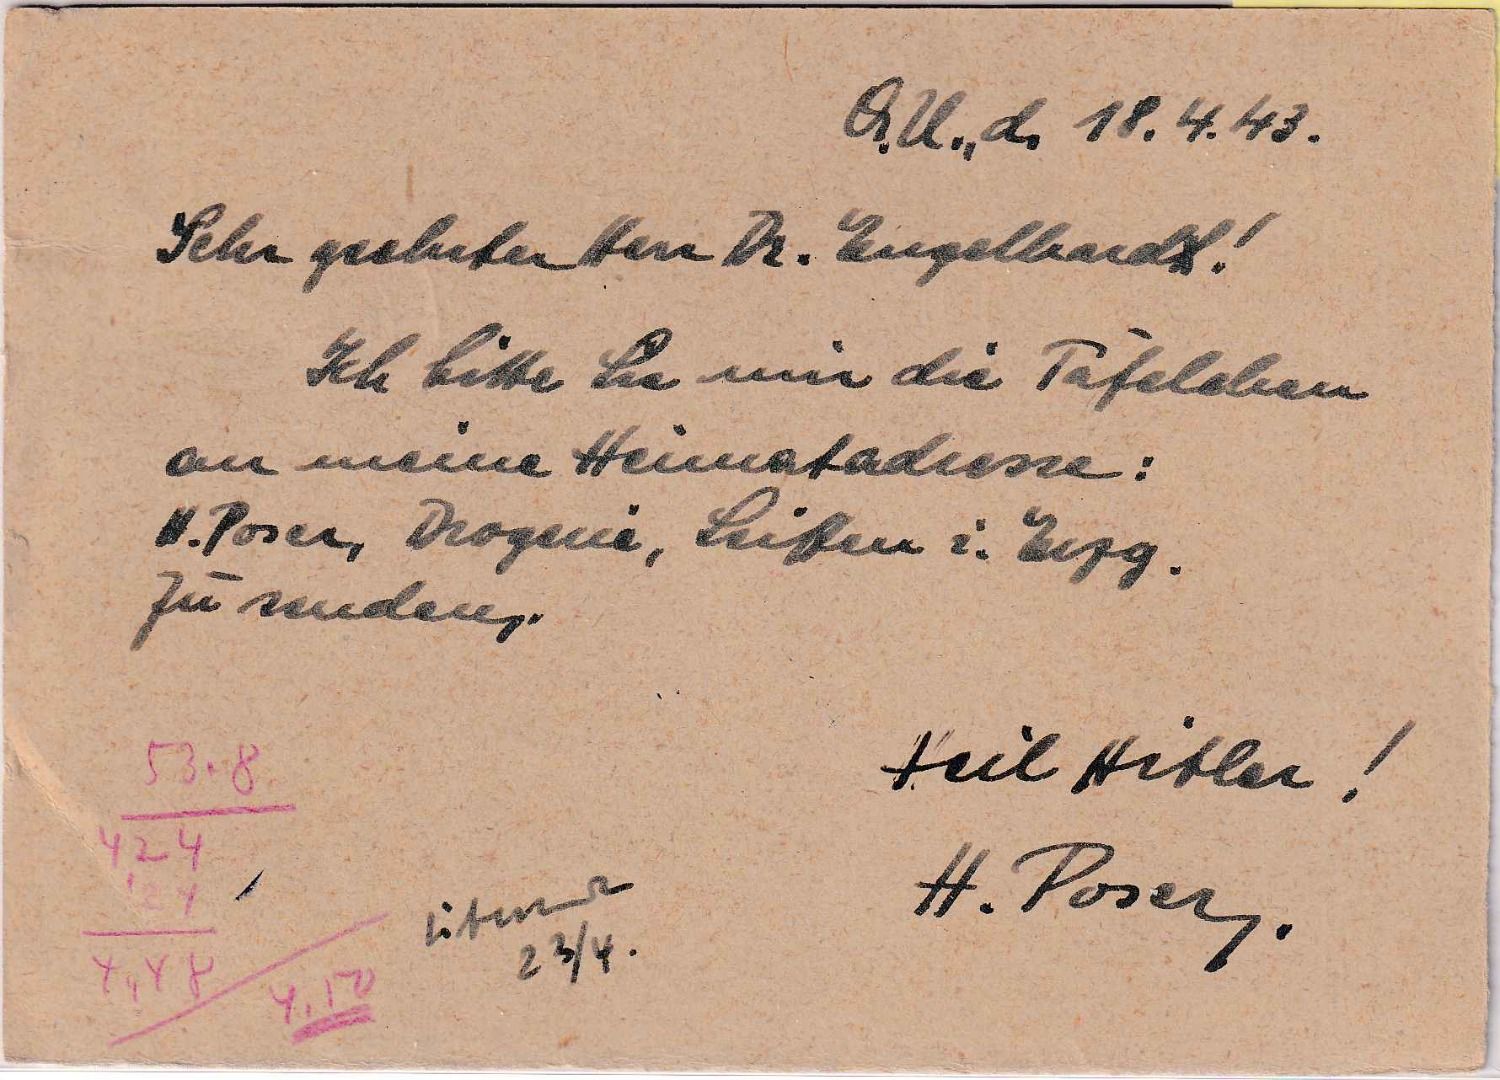 O.U., d. 18.4.43.
Sehr geehrter Herr Dr. Engelhardt!
Ich bitte Sie mir die Täfelchen
an meine Heimatadresse:
H. Poser, Drogerie, Seiffen i. Erzg.
zu senden.
Heil Hitler!
H. Poser.
53.8
424
24
4,48
4,50
23/4.